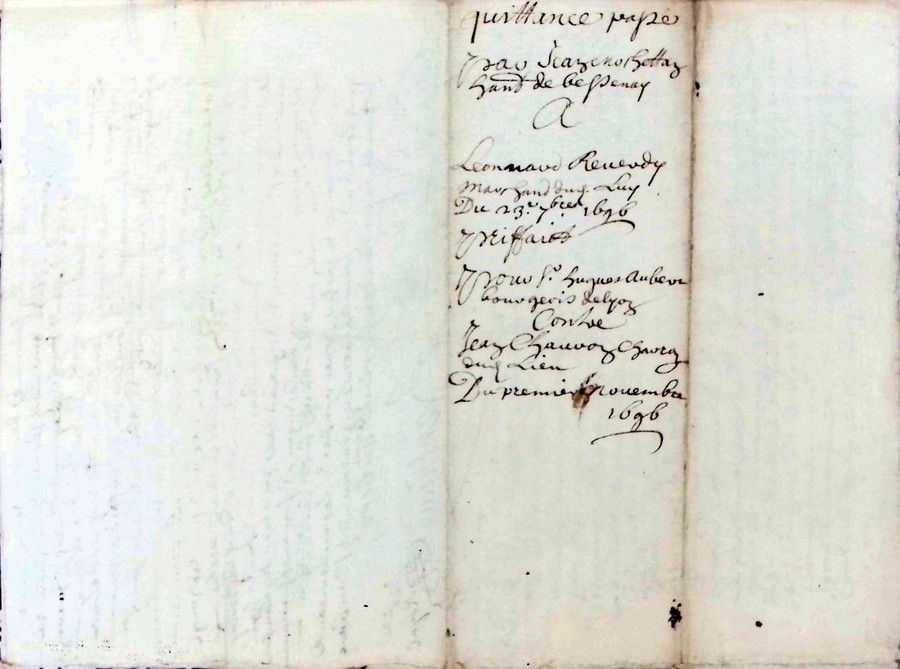 quittance passé
par Jean
hand de bessenay
A
Leonnard Reverdy
Marchand dud. Luy
Du 23e 7bre 1696
Priffaict
pour Sr. hugues Aubert
bourgeois de lyon
Contre
Jean Chauvon
dud Lieu
Du premier novembre
1696